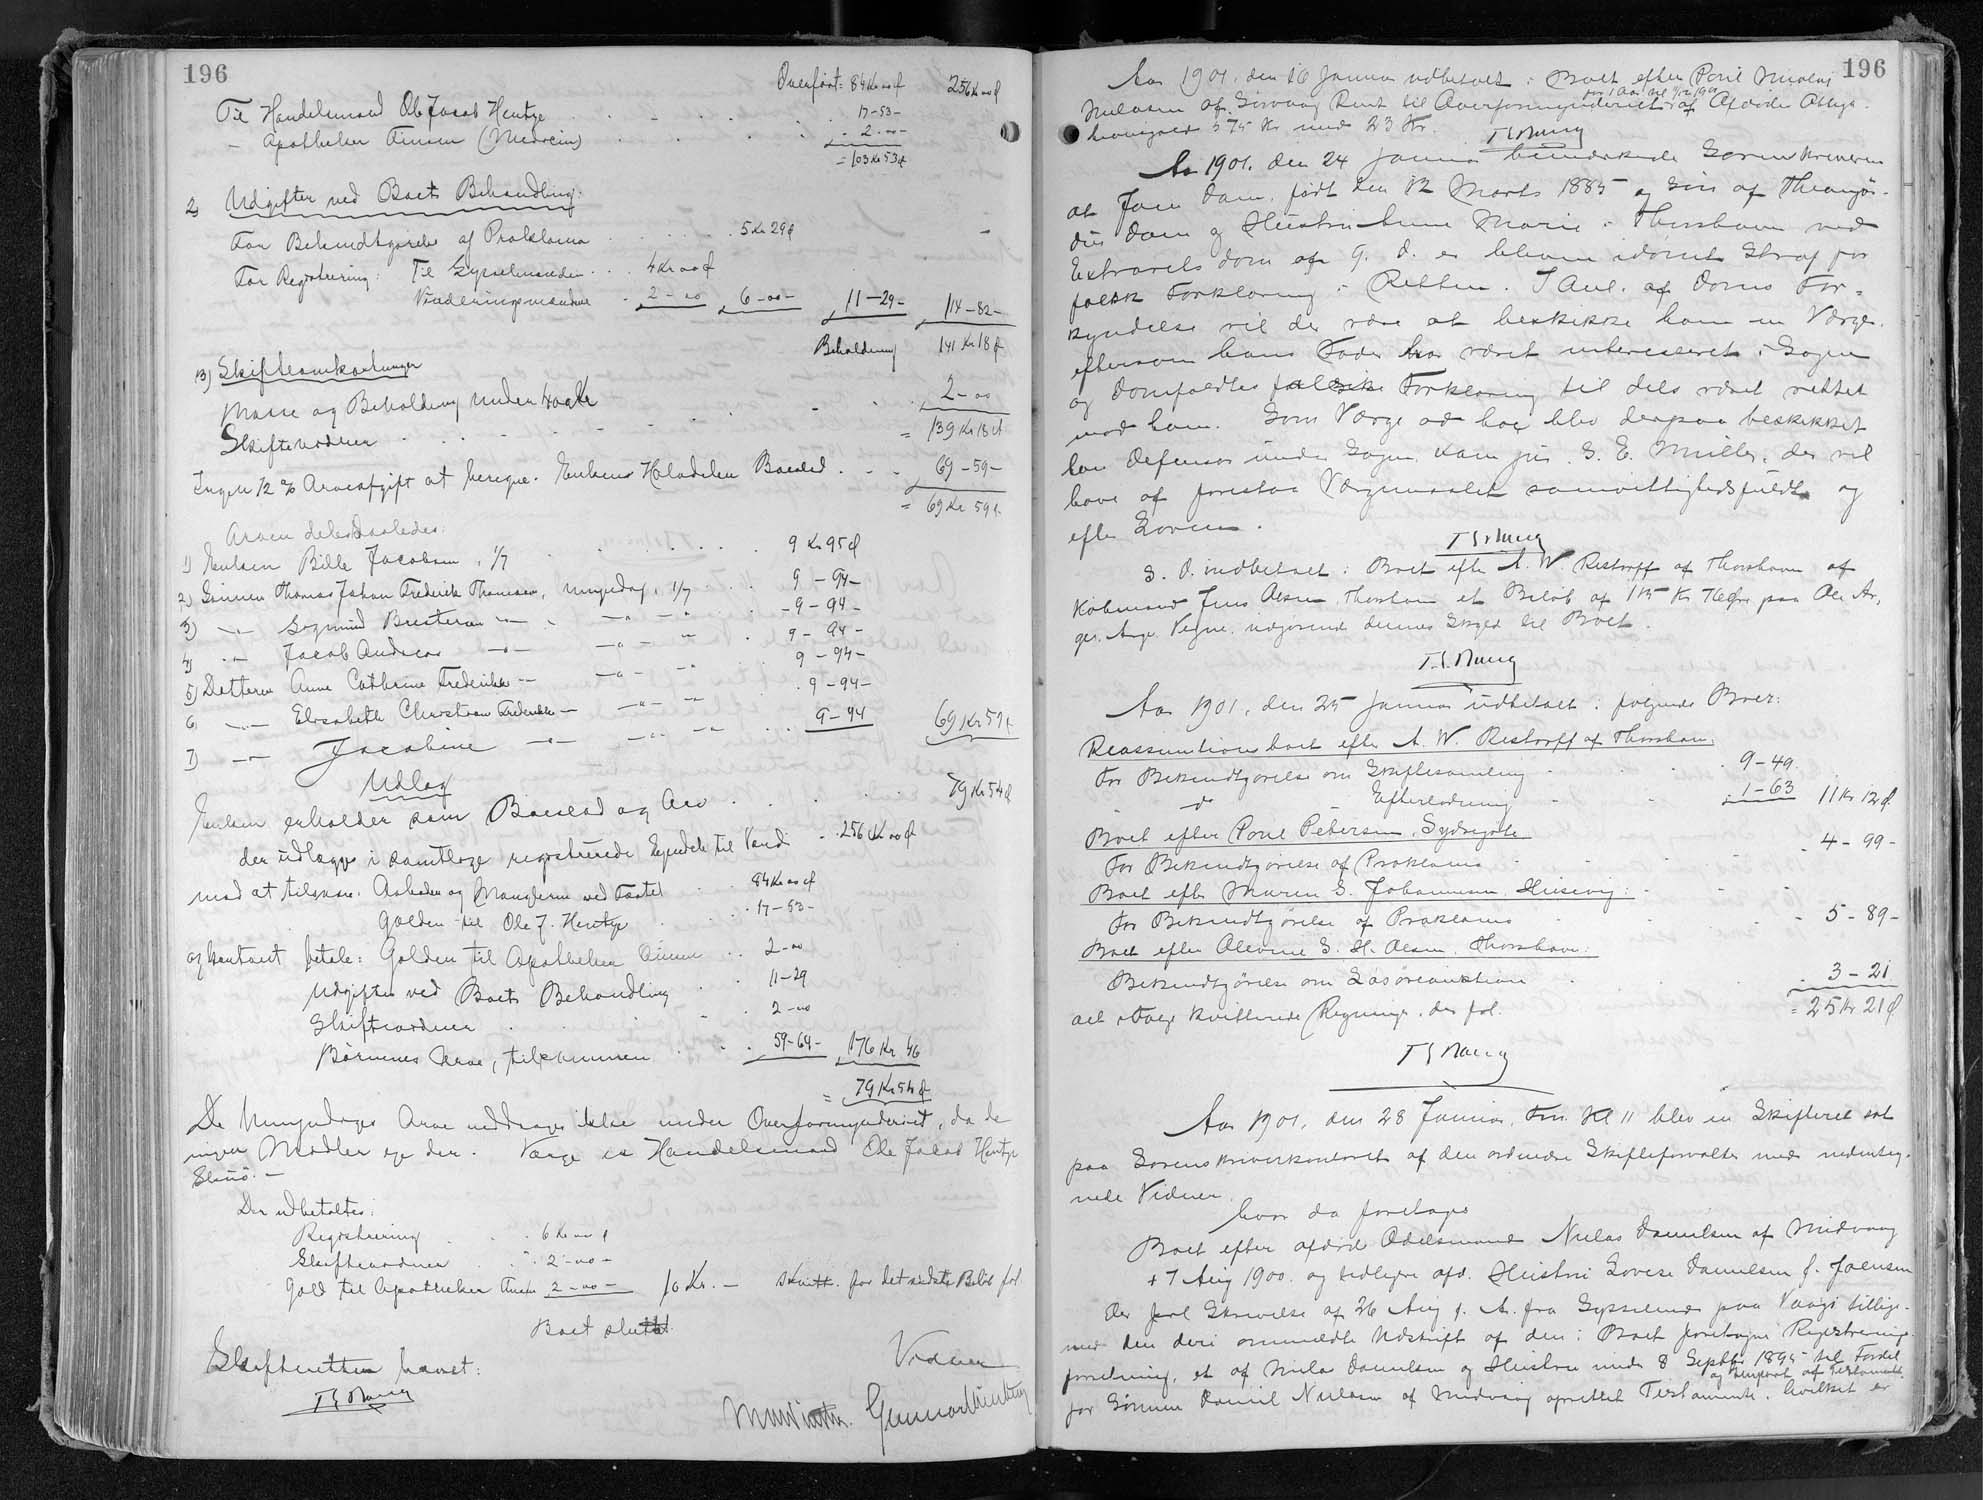 196
Overført: 84 Kr 00 Ø 256 Kr 00 Ø
Til Handelsmand Ole Jacob Hentze 17-53-
- Apotheker Finsen (Medicin) 2-00-
= 103 Kr 53 Ø
2) Udgifter ved Boets Behandling:
For Bekendtgørelse af Proklama 5 Kr 29 Ø
For Registrering: Til Sysselmanden 4 Kr 00 Ø
Vurderingsmændene 2-00 6-00- 11-29- 114-82-
Beholdning 141 Kr 18 Ø
3) Skifteomkostninger
Masse og Beholdning under 400 Kr
Skiftevidner 2-00
= 139 Kr 18 Ø
Ingen 1/2 % Arveafgift at beregne. Enkens Halvdel en Boeslod 69-59-
= 69 Kr 59 Ø
Arven deles saaledes:
1) Enken Bille Jacobsen, 1/7 9 Kr 95 Ø
2) Sønnen Thomas Johan Frederik Thomsen, umyndig, 1/7 9-94-
3) -"- Sigmund Bresteson -"- -"- -"- 9-94-
4) -"- Jacob Andreas -"- -"- -"- 9-94-
5) Datteren Anne Cathrine Frederikke -"- -"- -"- 9-94-
6) -"- Elisabeth Christiane Frederikke -"- -"- -"- 9-94-
7) -"- Jacobine -"- -"- -"- 9-94 69 Kr 59 Ø
Udlæg
Enken erholder som Boeslod og Arv 79 Kr 54 Ø
der udlægges i samtlige registrerede Ejendele til Værdi 256 Kr 00 Ø
mod at tilsvare: Aaboden og Manglerne ved Fæstet 84 Kr 00 Ø
Gælden til Ole J. Hentze 17-53-
og kontant betale: Gælden til Apotheker Finsen 2-00
Udgifter ved Boets Behandling 11-29
Skiftevidner 2-00
Børnenes Arve, tilsammen 59-64- 176 Kr 46
= 79 Kr 54 Ø
De Umyndiges Arve inddrages ikke under Overformynderiet, da de
ingen Midler eje der. Værge er Handelsmand Ole Jacob Hentze
Der udbetaltes:
Registrering 6 Kr 00 Ø
Skiftevidner 2-00-
Gæld til Apotheker Finsen 2-00- 10 Kr. - s. Kvitt. for det sidste Beløb fol.
Boet sluttet.
Skifteretten hævet:
Vidner
196
Aar 1901, den 16 Januar indbetalt i Boet efter Poul Nicolai
Nielsen af Sørvaag Rent til Overformynderiet for 1 Aar til 11/12 1900 af Afdøde Oblig.
hovedgæld 575 Kr med 23 Kr.
Aar 1901, den 24 Januar bemærkede Sorenskriveren
at Joen Dam, født den 12 Marts 1885 og Søn af
Dam og Hustru Anne Marie i Thorshavn ved
Extraretsdom af G. D. er bleven idømt Straf for
falsk Forklaring i Retten. I Anl. af Doms For-
kyndelse vil der være at beskikke ham en Værge,
eftersom hans Fader har været interesseret i Sagen
og Domfældtes falske Forklaring til dels været rettet
mod ham. Som Værge ad hoc blev derpaa beskikket
hans Defensor under Sagen, Exam. jur. S. E. Müller, der vil
have at forestaa Værgemaalet samvittighedsfuldt og
efter Loven.
S. D. indbetalt i Boet efter A. W. Restorff af Thorshavn af
Købmand Jens Olsen, Thorshavn et Beløb af 115 Kr 76 Øre paa
Vegne, udgørende dennes Gæld til Boet.
Aar 1901, den 25 Januar udbetalt i følgende Boer:
Reassumtionsboet efter A. W. Restorff af Thorshavn:
For Bekendtgørelse om Skiftesamling 9-49
- do - Efterlodning 1-63 11 Kr 12 Ø
Boet efter Poul Petersen, Sydregøte
For Bekendtgørelse af Proklama 4-99-
Boet efter Maren S. Johannesen, Husevig:
For Bekendtgørelse af Proklama 5-89-
Boet efter Alevine S. H. Olsen, Thorshavn:
Bekendtgørelse om Løsøreauktion 3-21
alt ifølge kvitterede Regninger, der fol. = 25 Kr 21 Ø
Aar 1901, den 28 Januar, Fm. Kl 11 blev en Skifteret sat
paa Sorenskriverkontoret af den ordinære Skifteforvalter med underteg-
nede Vidner,
hvor da foretages
Boet efter afdøde Odelsmand Nielas Danielsen af Midvaag
+ 7 Aug 1900, og tidligere afd. Hustru Lovise Danielsen f. Joensen
Der fol. Skrivelse af 26 Aug f. A. fra Sysselmd. paa Vaagø tillige-
med den deri ommeldte Udskrift af den i Boet foretagne Registrerings-
forretning, et af Nielas Danielsen og Hustru under 8 Septbr 1895 til Fordel
for Sønnen Daniel Nielsen af Midvaag oprettet Testamente, hvilket er